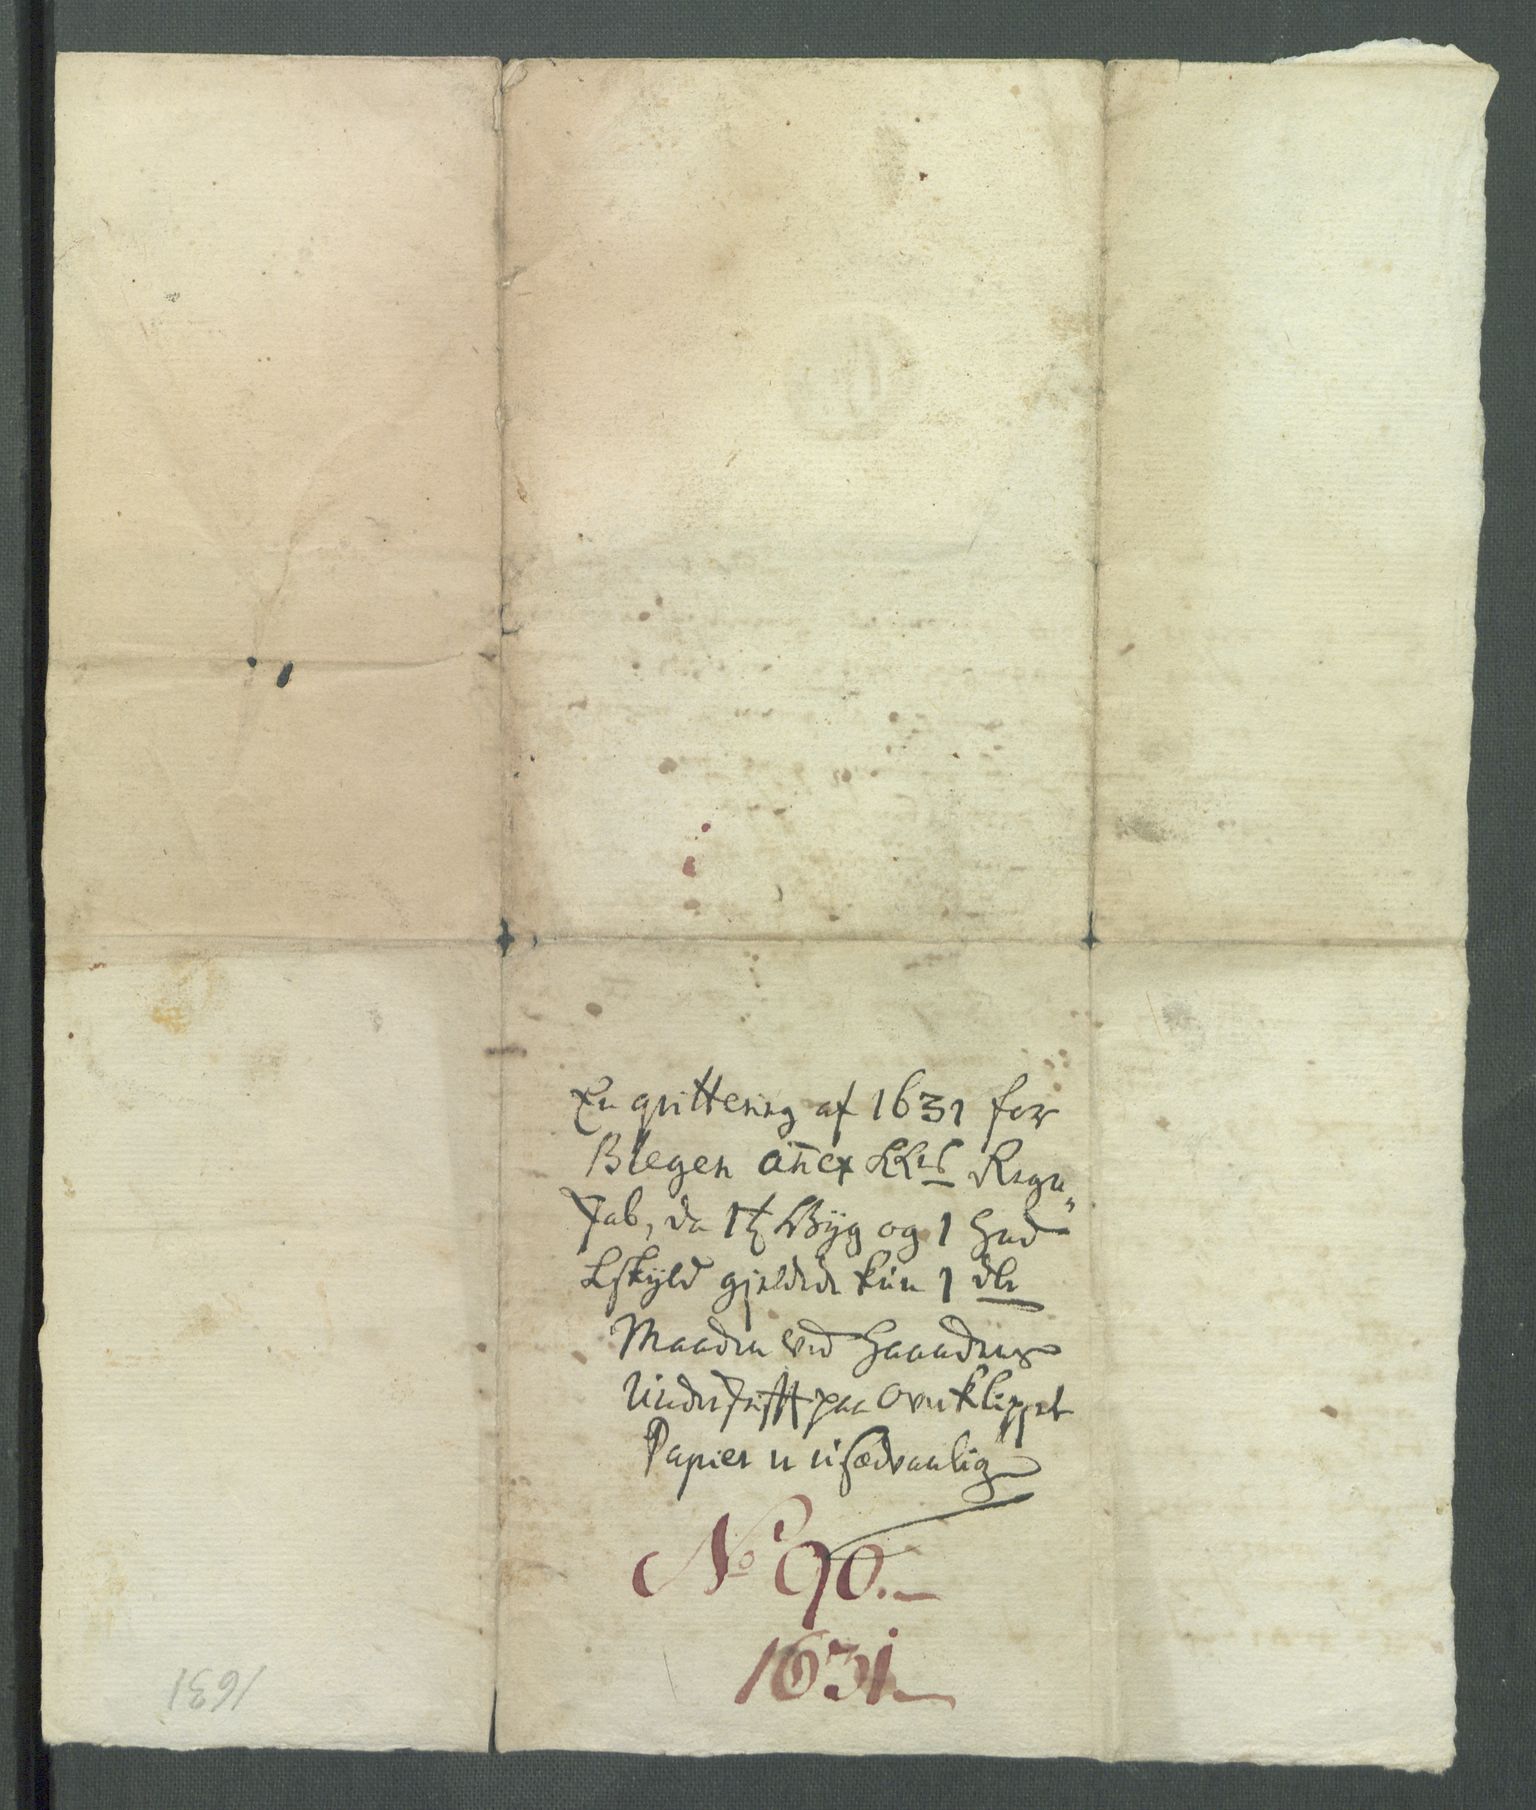 En qvittering af 1631 for
Blegen anex Regn„
skab, da 1 t Byg og 1 Hud
Lskyld gjeldede kun 1 dlr
Maaden ved Haanden
Underskrifft paa overklippet
Papier er usædvanlig
No 90.
1631.
1631